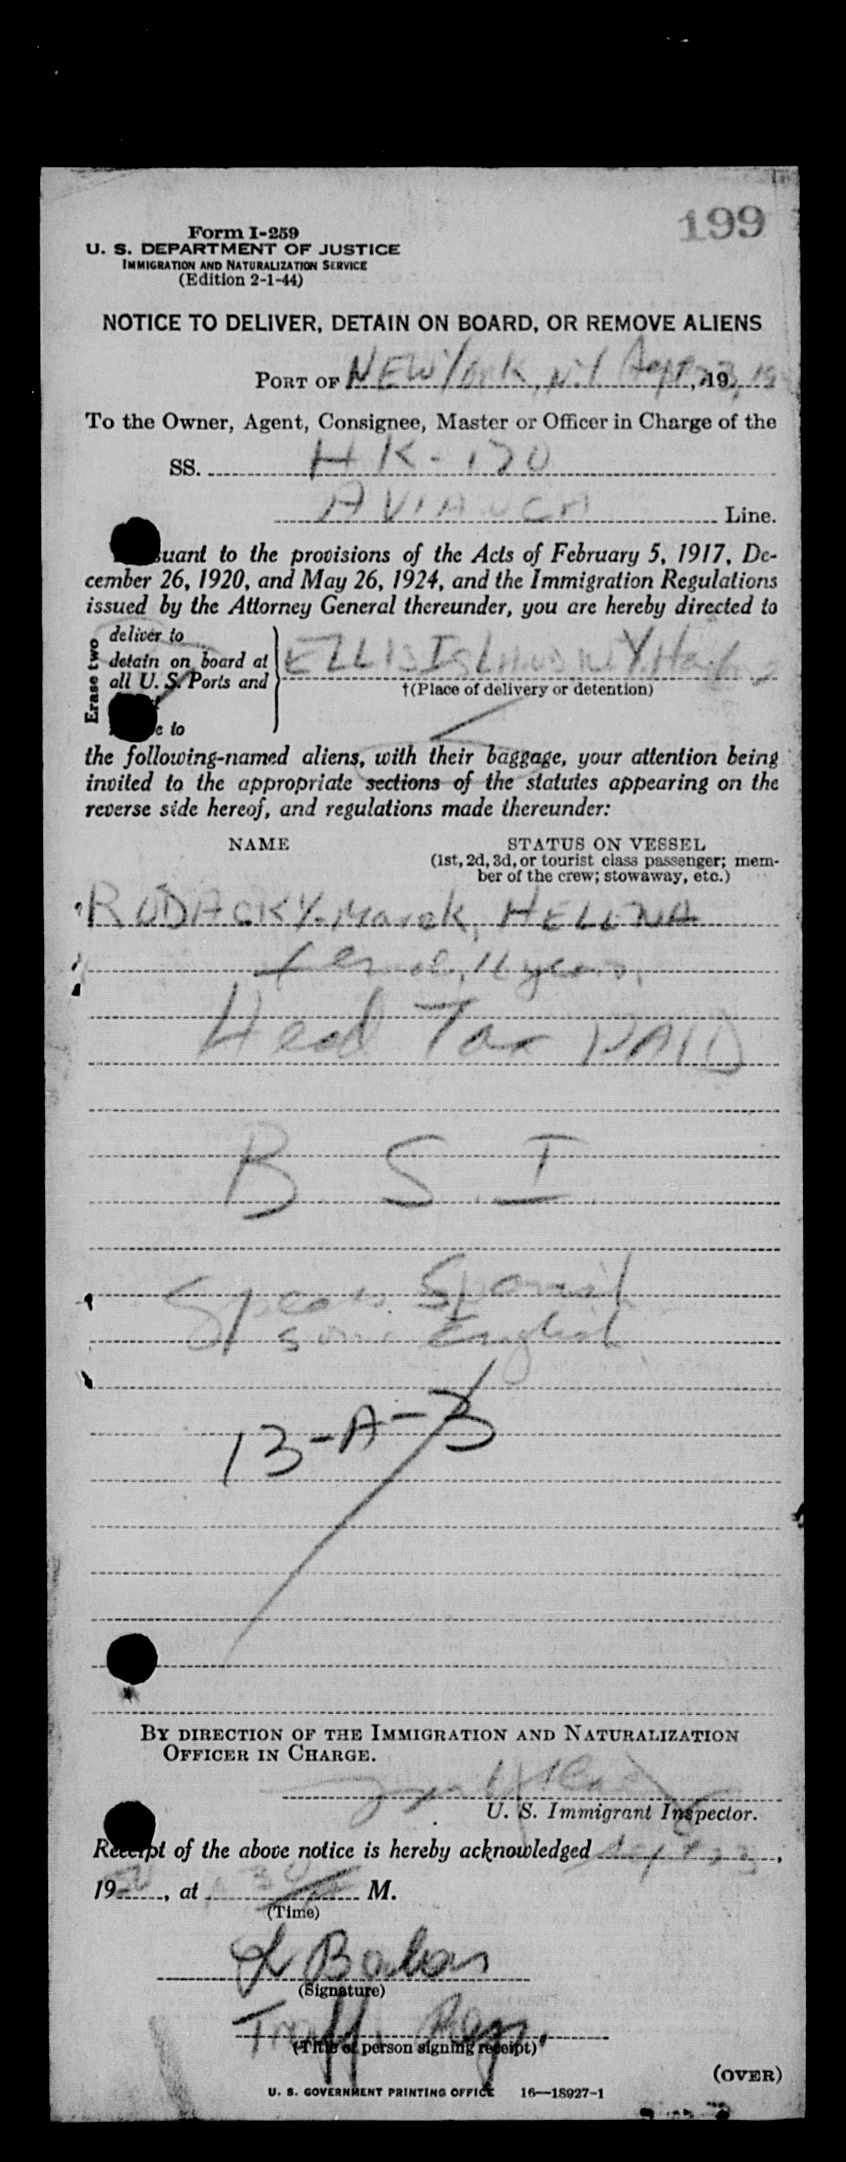 199
Form I-259
U. S. DEPARTMENT OF JUSTICE
IMMIGRATION AND NATURALIZATION SERVICE
(Edition 2-1-44)
NOTICE TO DELIVER, DETAIN ON BOARD, OR REMOVE ALIENS
PORT OF NEW York, N.Y 23, 19
To the Owner, Agent, Consignee, Master or Officer in Charge of the
SS. HK-170
Line.
uant to the provisions of the Acts of February 5, 1917, De-
cember 26, 1920, and May 26, 1924, and the Immigration Regulations
issued by the Attorney General thereunder, you are hereby directed to
Erase two
deliver to
detain on board at
all U. S. Ports and
e to
ELLIS ISLAND N.Y. Harbor
†(Place of delivery or detention)
the following-named aliens, with their baggage, your attention being
invited to the appropriate sections of the statutes appearing on the
reverse side hereof, and regulations made thereunder:
NAME
STATUS ON VESSEL
(1st, 2d, 3d, or tourist class passenger; mem-
ber of the crew; stowaway, etc.)
RUDACKY-Marek, HELENA
years,
Head Tax PAID
B. S. I.
Speaks Spanish
some English
13-A-3
BY DIRECTION OF THE IMMIGRATION AND NATURALIZATION
OFFICER IN CHARGE.
U. S. Immigrant Inspector.
Receipt of the above notice is hereby acknowledged 23,
19 , at M.
(Time)
(Signature)
(Title of person signing receipt)
(OVER)
U. S. GOVERNMENT PRINTING OFFICE 16—18927-1